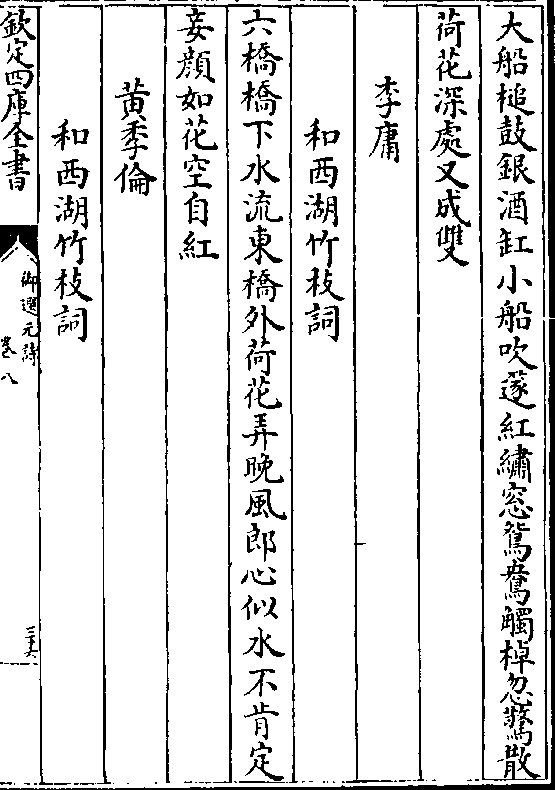 大船槌鼓銀酒缸小船吹篴紅繡窓鴛鴦觸棹忽驚散
荷花深處又成雙
李庸
和西湖竹枝詞
六橋橋下水流東橋外荷花弄晚風郎心似水不肯定
妾顔如花空自紅
黄季倫
和西湖竹枝詞
欽定四庫全書
御選元詩
卷八
三十六